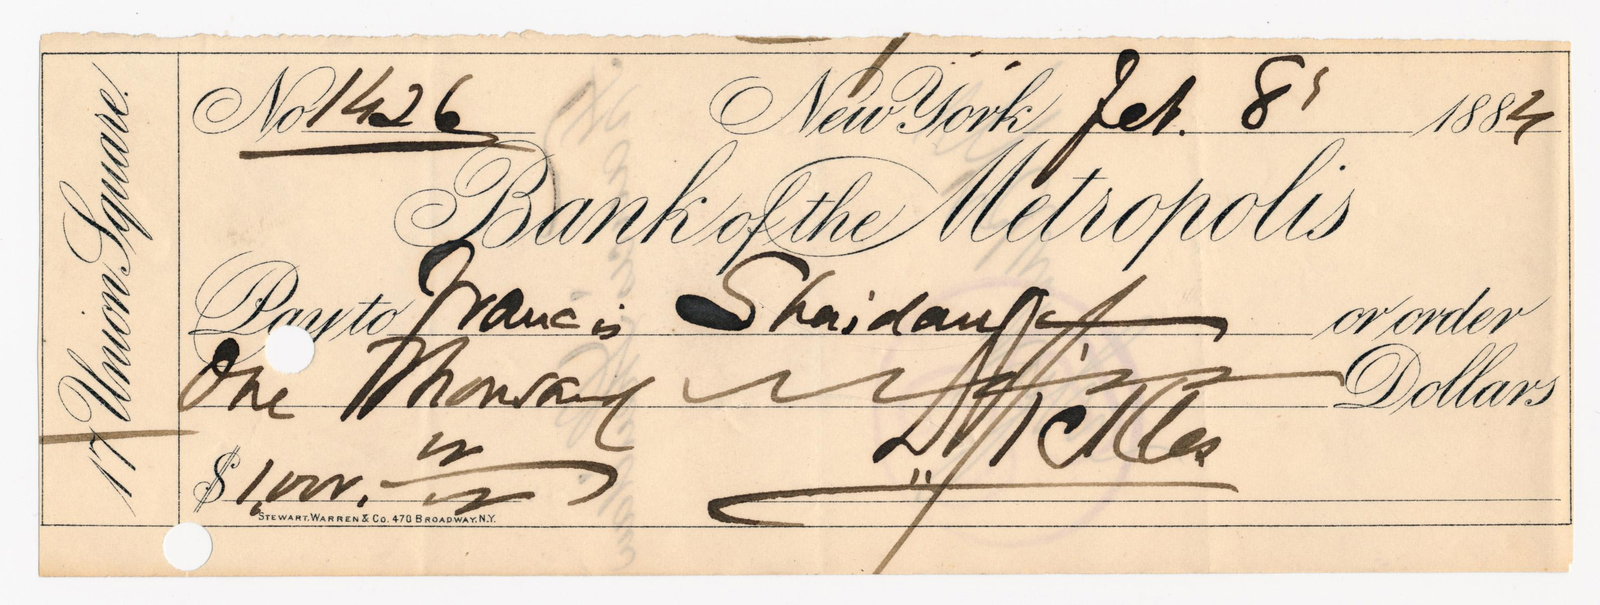 17 Union Square.
No 1426 New York Feb. 8' 1884
Bank of the Metropolis
Pay to Francis or order
One Thousand Dollars
$1,000.
D Sickles
STEWART, WARREN & Co. 470 BROADWAY, N.Y.